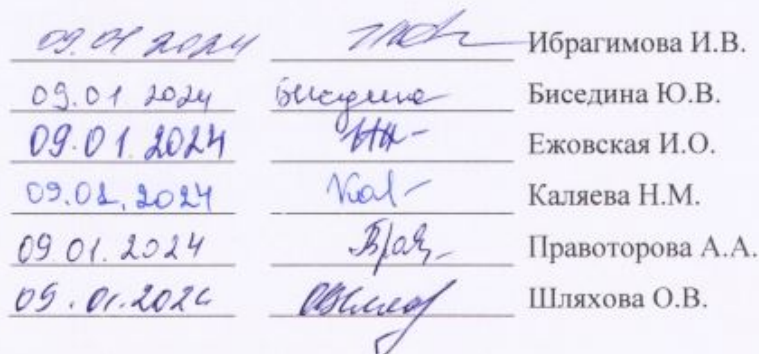 09.01 2024 Ибрагимова И.В.
09.01 2024 Биседина Биседина Ю.В.
09.01.2024 Ежовская И.О.
09.01.2024 Кал Каляева Н.М.
09 01. 2024 Правоторова А.А.
09.01.2024 Шляхова О.В.